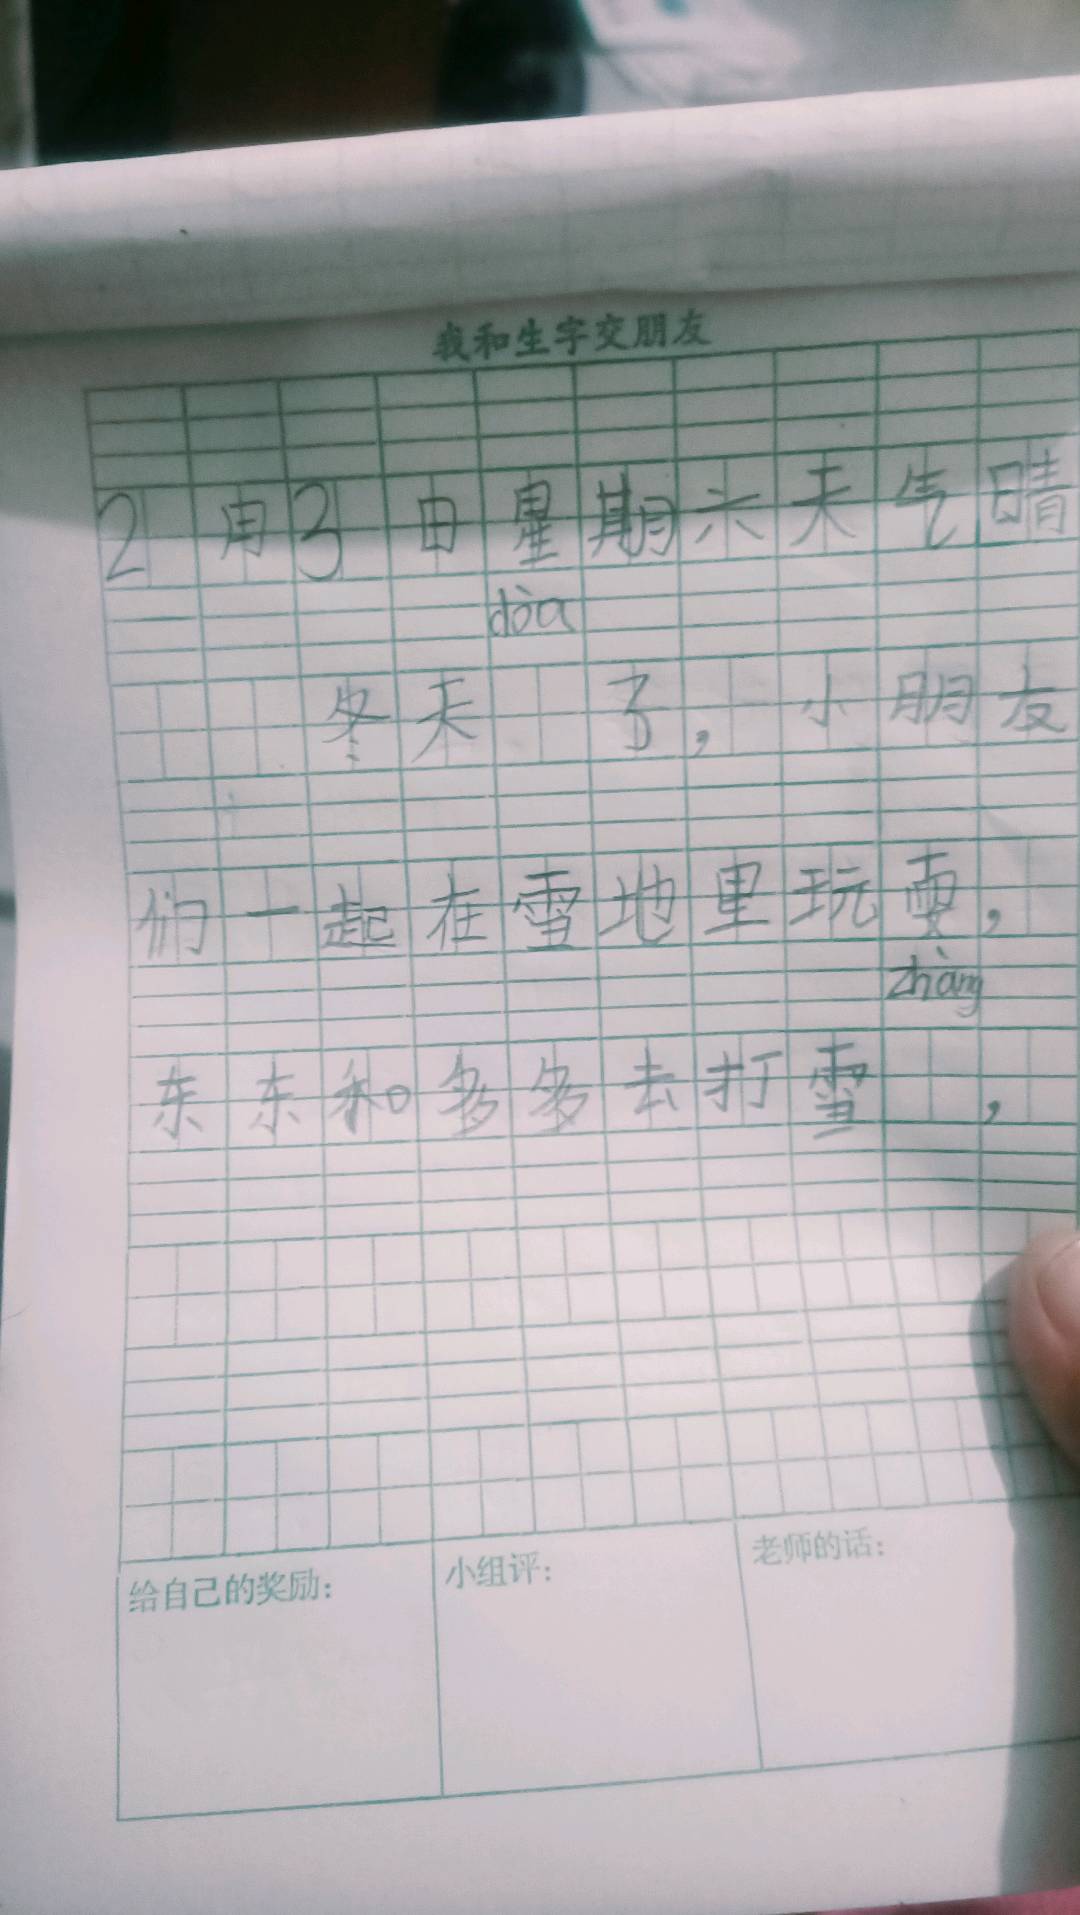 我和生字交朋友
2月3日星期六天气晴
dòa
冬天 了，小朋友
们一起在雪地里玩耍，
zhàng
东东和多多去打雪 ，
给自己的奖励：
小组评：
老师的话：